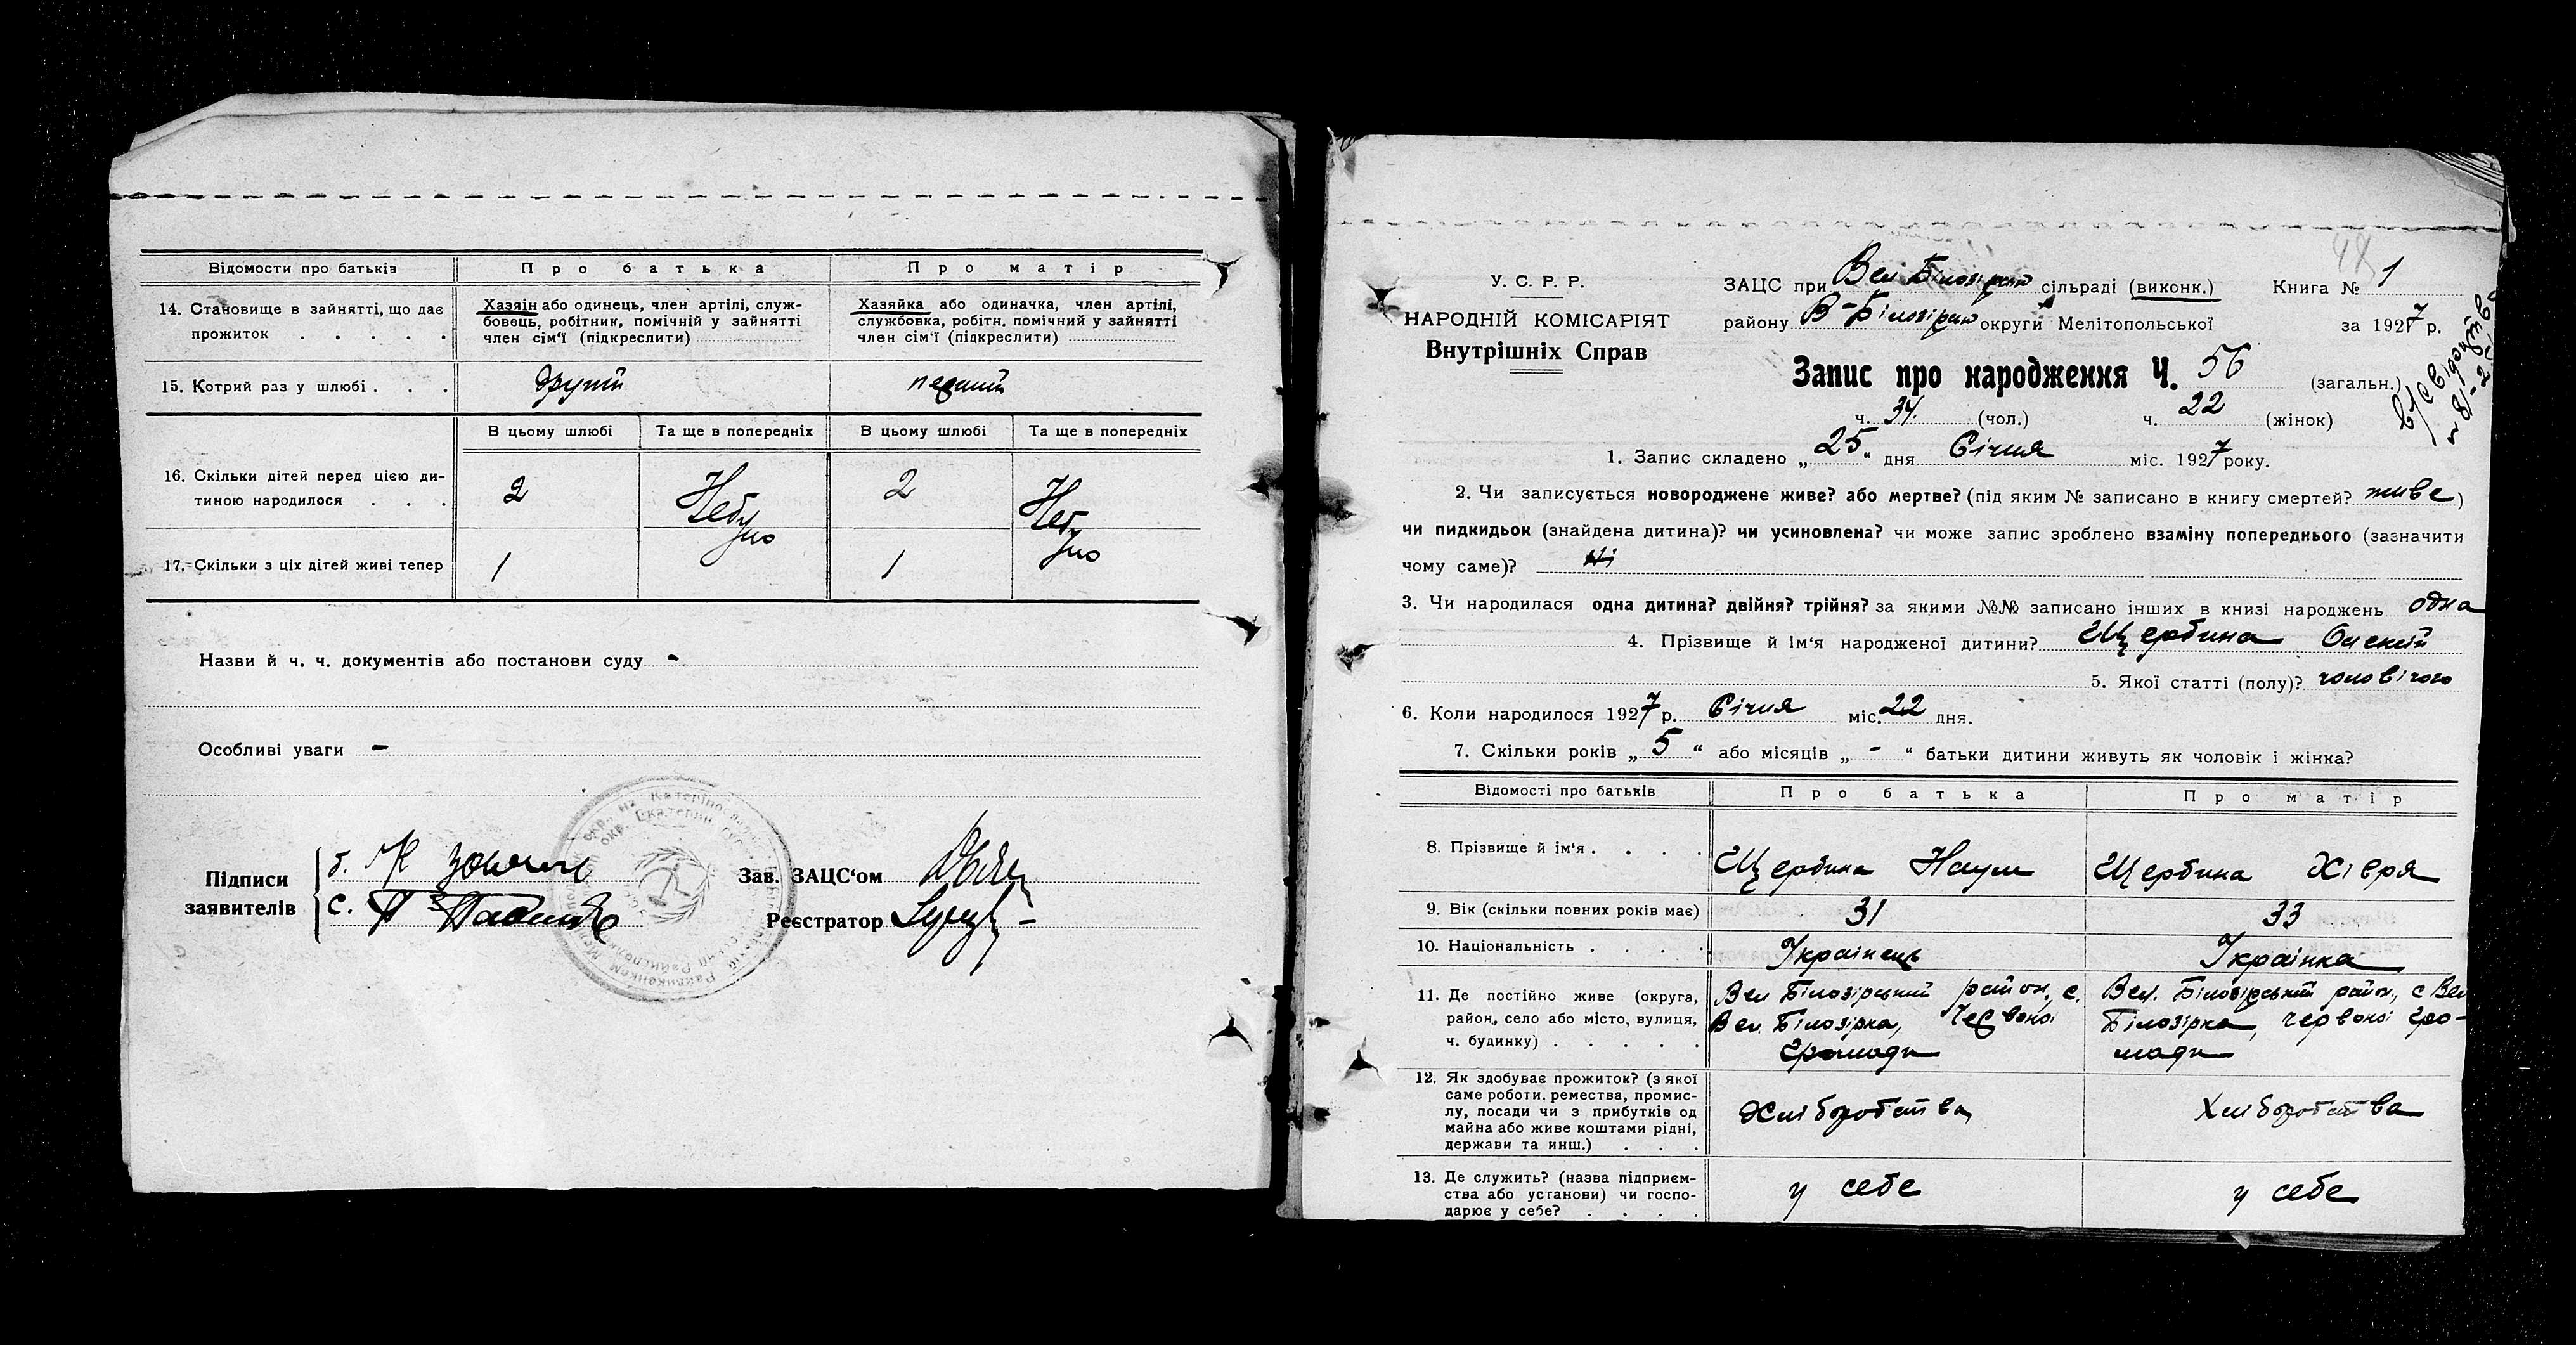 Відомости про батьків
Про батька
Про матір
14. Становище в зайнятті, що дає
прожиток . . . . .
Хазяін або одинець, член артілі, служ-
бовець, робітник, помічній у зайнятті
член сім'ї (підкреслити)
Хазяйка або одиначка, член артілі,
службовка, робітн. помічний у зайнятті
член сім'ї (підкреслити)
15. Котрий раз у шлюбі . . .
другий
первий
В цьому шлюбі
Та ще в попередніх
В цьому шлюбі
Та ще в попередніх
16. Скільки дітей перед цією ди-
тиною народилося . . .
2
Небуло
2
Небуло
17. Скільки з ціх дітей живі тепер
1
1
Назви й ч. ч. документів або постанови суду -
Особливі уваги -
Підписи
заявителів
Зав. ЗАЦС'ом
Реєстратор
У. С. Р. Р.
НАРОДНІЙ КОМІСАРІЯТ
Внутрішніх Справ
ЗАЦС при Вел Білозірськ сільраді (виконк.)
Книга № 1
району В-Білозірськ округи Мелітопольської
за 1927 р.
Запис про народження Ч. 56 (загальн.)
ч. 34 (чол.) ч. 22 (жінок)
1. Запис складено „25“ дня Січня міс. 1927 року.
2. Чи записується новороджене живе? або мертве? (під яким № записано в книгу смертей? живе)
чи пидкидьок (знайдена дитина)? чи усиновлена? чи може запис зроблено взаміну попереднього (зазначити
чому саме)? Ні
3. Чи народилася одна дитина? двійня? трійня? за якими №№ записано інших в книзі народжень одна
4. Прізвище й ім'я народженої дитини? Щербина Олексій
5. Якої статті (полу)? чоловічого
6. Коли народилося 1927 р. Січня міс. 22 дня.
7. Скільки років „5“ або місяців „-“ батьки дитини живуть як чоловік і жінка?
Відомості про батьків
Про батька
Про матір
8. Прізвище й ім'я . . . .
Щербина Наум
Щербина Хівря
9. Вік (скільки повних років має)
31
33
10. Національність . . . .
Українець
Українка
11. Де постійно живе (округа,
район, село або місто, вулиця,
ч. будинку) . . . . .
Вел Білозірський район, с.
Вел. Білозірка, Червоної
Громади
Вел. Білозірський район, с Вел
Білозірка, Червоної Гро-
мади
12. Як здобуває прожиток? (з якої
саме роботи, ремества, промис-
лу, посади чи з прибутків од
майна або живе коштами рідні,
держави та инш.) . . .
Хліборобства
Хліборобства
13. Де служить? (назва підприєм-
ства або установи) чи госпо-
дарює у себе? . . . .
у себе
у себе